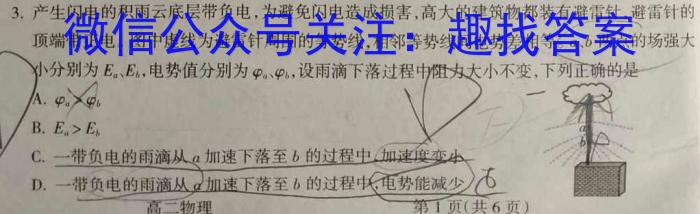 3. 产生闪电的积雨云底层带负电,为避免闪电造成损害,高大的建筑物都装有避雷针,避雷针的
顶端带 电
微信公众号关注：趣找答案
的场强大
小分别为 Eₐ、E_b,电势值分别为 φₐ、φ_b,设雨滴下落过程中阻力大小不变,下列正确的是
A. φₐ>φ_b
B. Eₐ>E_b
C. 一带负电的雨滴从 a 加速下落至 b 的过程中,加速度变小
D. 一带负电的雨滴从 a 加速下落至 b 的过程中,电势能减少
a
b
高二物理 第 1 页(共 6 页)